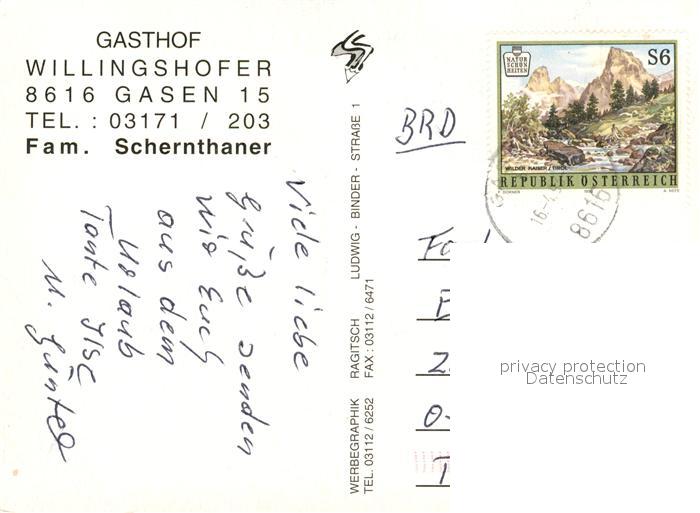 GASTHOF
WILLINGSHOFER
8616 GASEN 15
TEL. : 03171 / 203
Fam. Schernthaner
Viele liebe
Grüße senden
wir Euch
aus dem
Urlaub
Tante Ilse
u. Günter
WERBEGRAPHIK RAGITSCH LUDWIG - BINDER - STRAßE 1
TEL. 03112 / 6252 FAX : 03112 / 6471
NATUR
SCHÖN
HEITEN
S6
WILDER KAISER / TIROL
REPUBLIK ÖSTERREICH
8616
BRD
privacy protection
Datenschutz